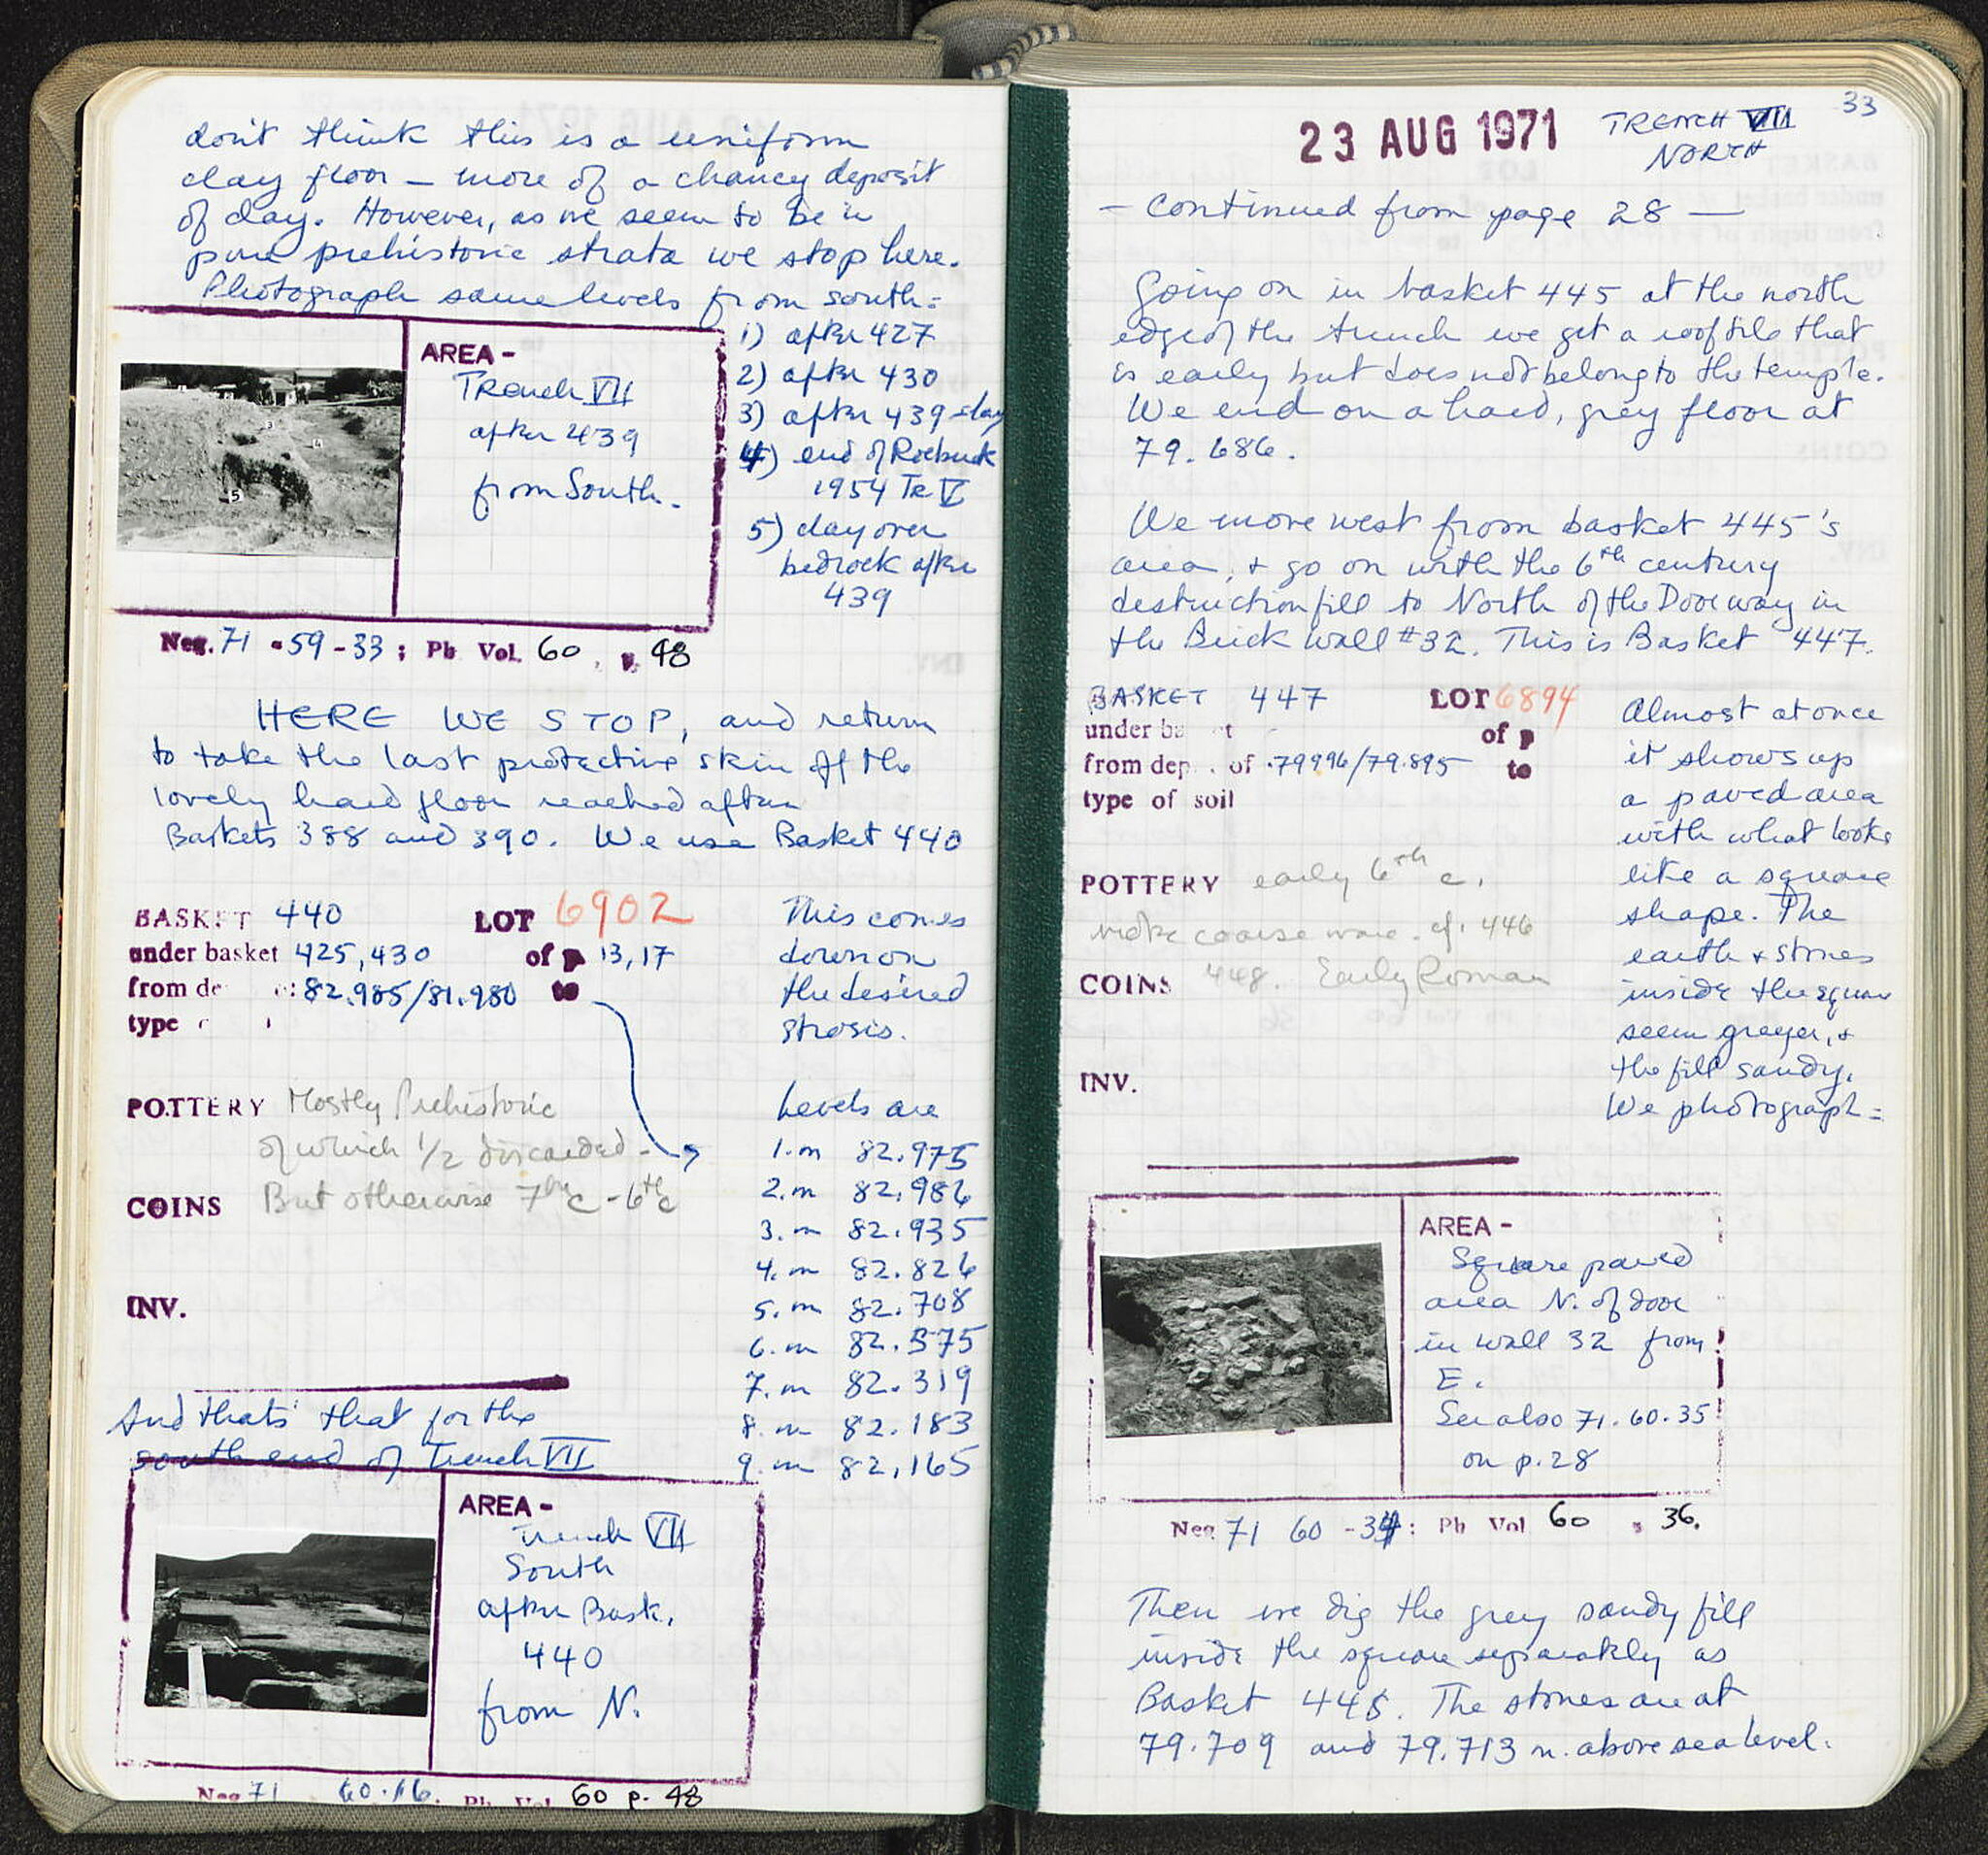 don't think this is a uniform
clay floor — more of a chancy deposit
of clay. However, as we seem to be in
pure prehistoric strata we stop here.
Photograph same levels from south:
1) after 427
2) after 430
3) after 439 - clay
4) end of Roebuck
1954 Tr V
5) clay over
bedrock after
439
AREA -
Trench VII
after 439
from South.
3
4
5
Neg. 71 - 59 - 33 ; Ph Vol. 60 , p. 48
HERE WE STOP, and return
to take the last protective skin off the
lovely hard floor reached after
Baskets 388 and 390. We use Basket 440
BASKET 440 LOT 6902
under basket 425, 430 of p 13, 17
from de : 82.985/81.980 to
type
POTTERY Mostly Prehistoric
of which 1/2 discarded -
COINS But otherwise 7th c - 6th c
INV.
This comes
down on
the desired
strosis.
Levels are
1. m 82.975
2. m 82.986
3. m 82.935
4. m 82.826
5. m 82.708
6. m 82.575
7. m 82.319
8. m 82.183
9. m 82.165
And thats that for the
south end of Trench VII
AREA -
Trench VII
South
after Bask.
440
from N.
Neg 71 60-16. Ph Vol 60 p. 48
33
23 AUG 1971
TRENCH VII
NORTH
- Continued from page 28 —
Going on in basket 445 at the north
edge of the trench we get a rooftile that
is early but does not belong to the temple.
We end on a hard, grey floor at
79.686.
We move west from basket 445's
area, + go on with the 6th century
destruction fill to North of the Doorway in
the Brick Wall #32. This is Basket 447.
BASKET 447 LOT 6894
under ba et of p
from dep. of 79.996/79.895 to
type of soil
POTTERY early 6th c.
coarse ware. cf. 446
COINS 448. Early Roman
INV.
Almost at once
it shows up
a paved area
with what looks
like a square
shape. The
earth + stones
inside the square
seem greyer, +
the fill sandy.
We photograph:
AREA -
Square paved
area N. of door
in wall 32 from
E.
See also 71.60.35
on p. 28
Neg 71 60 - 34 : Ph Vol 60 , 36.
Then we dig the grey sandy fill
inside the square separately as
Basket 448. The stones are at
79.709 and 79.713 m. above sea level.